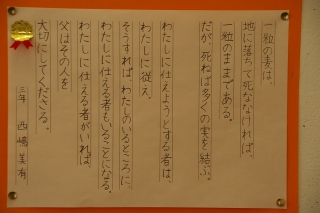 一粒の麦は、
地に落ちて死ななければ、
一粒のままである。
だが、死ねば多くの実を結ぶ。
わたしに仕えようとする者は、
わたしに従え。
そうすれば、わたしのいるところに、
わたしに仕える者もいることになる。
わたしに仕える者がいれば、
父はその人を
大切にしてくださる。
三年 西嶋美有